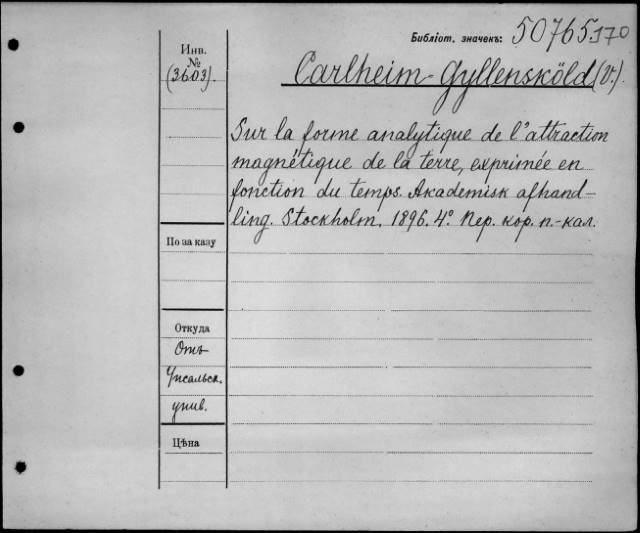 Библіот. значекъ: 50765.170
Инв.
№
(3603).
Carlheim-Gyllensköld (V.).
Sur la forme analytique de l'attraction
magnétique de la terre, exprimée en
fonction du temps. Akademisk afhand-
ling. Stockholm. 1896. 4°. Пер. кор. п.-кал.
По заказу
Откуда
Отъ
Упсальск.
унив.
Цѣна